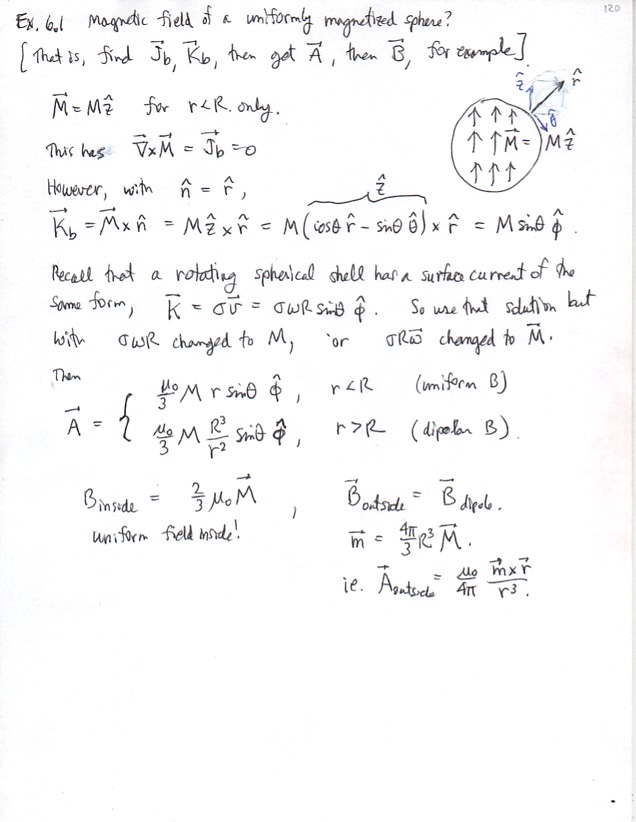 120
Ex. 6.1 Magnetic field of a uniformly magnetized sphere?
[That is, find J⃗b, K⃗b, then get A⃗, then B⃗, for example].
M⃗ = Mẑ for r<R only.
ẑ r̂
θ̂
↑ ↑ ↑
↑ ↑ M⃗ = Mẑ
↑ ↑ ↑
This has ∇⃗×M⃗ = J⃗b = 0
However, with n̂ = r̂,
ẑ
K⃗b = M⃗×n̂ = Mẑ×r̂ = M(cosθ r̂ − sinθ θ̂)×r̂ = M sinθ φ̂.
Recall that a rotating spherical shell has a surface current of the
same form, K⃗ = σv⃗ = σωR sinθ φ̂. So use that solution but
with σωR changed to M, or σRω⃗ changed to M⃗.
Then
A⃗ = { μ₀/3 M r sinθ φ̂, r<R (uniform B)
μ₀/3 M R³/r² sinθ φ̂, r>R (dipolar B).
Binside = 2/3 μ₀M⃗ , B⃗outside = B⃗dipole.
uniform field inside! m⃗ = 4π/3 R³ M⃗.
ie. A⃗outside = μ₀/4π m⃗×r⃗/r³.